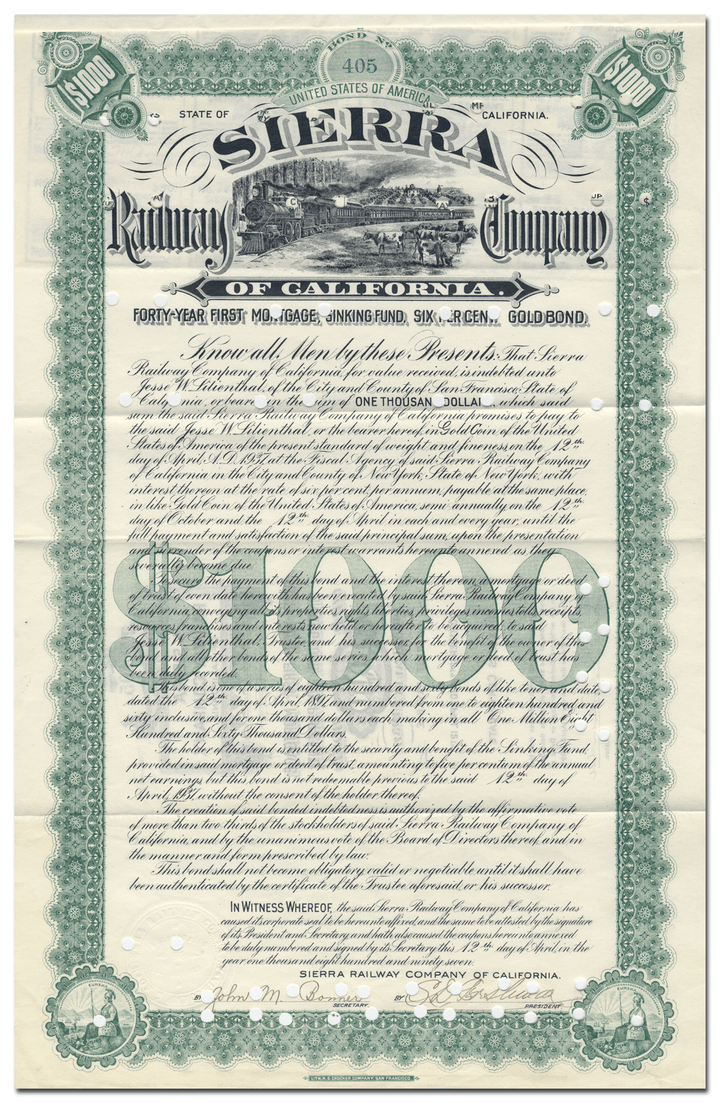 BOND No
405
$1000
$1000
UNITED STATES OF AMERICA
STATE OF CALIFORNIA.
SIERRA
Railway Company
OF CALIFORNIA.
FORTY-YEAR FIRST MORTGAGE, SINKING FUND, SIX PER CENT. GOLD BOND.
Know all Men by these Presents: That Sierra
Railway Company of California, for value received, is indebted unto
Jesse W. Lilienthal, of the City and County of San Francisco, State of
California, or bearer, in the sum of ONE THOUSAND DOLLARS, which said
sum the said Sierra Railway Company of California promises to pay to
the said Jesse W. Lilienthal, or the bearer hereof, in Gold Coin of the United
States of America of the present standard of weight and fineness, on the 12th
day of April, A.D. 1937, at the Fiscal Agency of said Sierra Railway Company
of California in the City and County of New York, State of New York, with
interest thereon at the rate of six per cent. per annum, payable at the same place,
in like Gold Coin of the United States of America, semi-annually on the 12th
day of October and the 12th day of April in each and every year, until the
full payment and satisfaction of the said principal sum, upon the presentation
and surrender of the coupons or interest warrants hereto annexed as they
severally become due.
$1000
To secure the payment of this bond and the interest thereon, a mortgage or deed
of trust of even date herewith has been executed by said Sierra Railway Company of
California, conveying all its properties, rights, liberties, privileges, incomes, tolls, receipts,
resources, franchises and interests now held or hereafter to be acquired, to said
Jesse W. Lilienthal, Trustee, and his successor, for the benefit of the owner of this
bond and all other bonds of the same series, which mortgage or deed of trust has
been duly recorded.
This bond is one of a series of eighteen hundred and sixty bonds of like tenor and date,
dated the 12th day of April 1897, and numbered from one to eighteen hundred and
sixty inclusive, and for one thousand dollars each, making in all One Million Eight
Hundred and Sixty Thousand Dollars.
The holder of this bond is entitled to the security and benefit of the Sinking Fund,
provided in said mortgage or deed of trust, amounting to five per centum of the annual
net earnings, but this bond is not redeemable previous to the said 12th day of
April, 1937, without the consent of the holder thereof.
The creation of said bonded indebtedness is authorized by the affirmative vote
of more than two thirds of the stockholders of said Sierra Railway Company of
California, and by the unanimous vote of the Board of Directors thereof, and in
the manner and form prescribed by law.
This bond shall not become obligatory, valid or negotiable until it shall have
been authenticated by the certificate of the Trustee aforesaid, or his successor.
IN WITNESS WHEREOF, the said Sierra Railway Company of California has
caused its corporate seal to be hereunto affixed, and the same to be attested by the signature
of its President and Secretary, and hath also caused the coupons hereinto annexed
to be duly numbered and signed by its Secretary this 12th day of April, in the
year one thousand eight hundred and ninety seven.
SIERRA RAILWAY COMPANY OF CALIFORNIA.
BY John M. Bonner BY
SECRETARY. PRESIDENT.
LITH. H. S. CROCKER COMPANY, SAN FRANCISCO